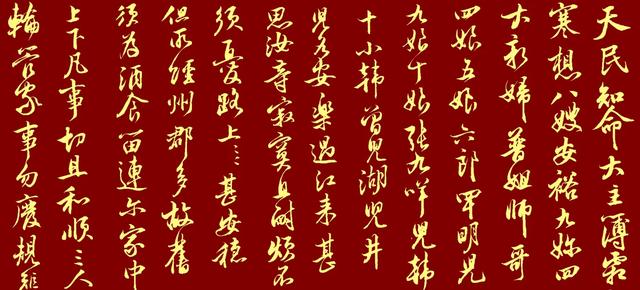 天民知命大主簿霜
寒想八嫂安裕九妳四
大新婦普姐師哥
四娘五娘六郎四明兒
九娘十娘張九咩兒韓
十小韓曾兒湖兒井
兒各安樂過江來甚
思汝等寂寞且耐煩不
須憂路上〻〻甚安穩
但所經州郡多故舊
須為酒食留連尔家中
上下凡事切且和順三人
輪管家事勿廢規矩